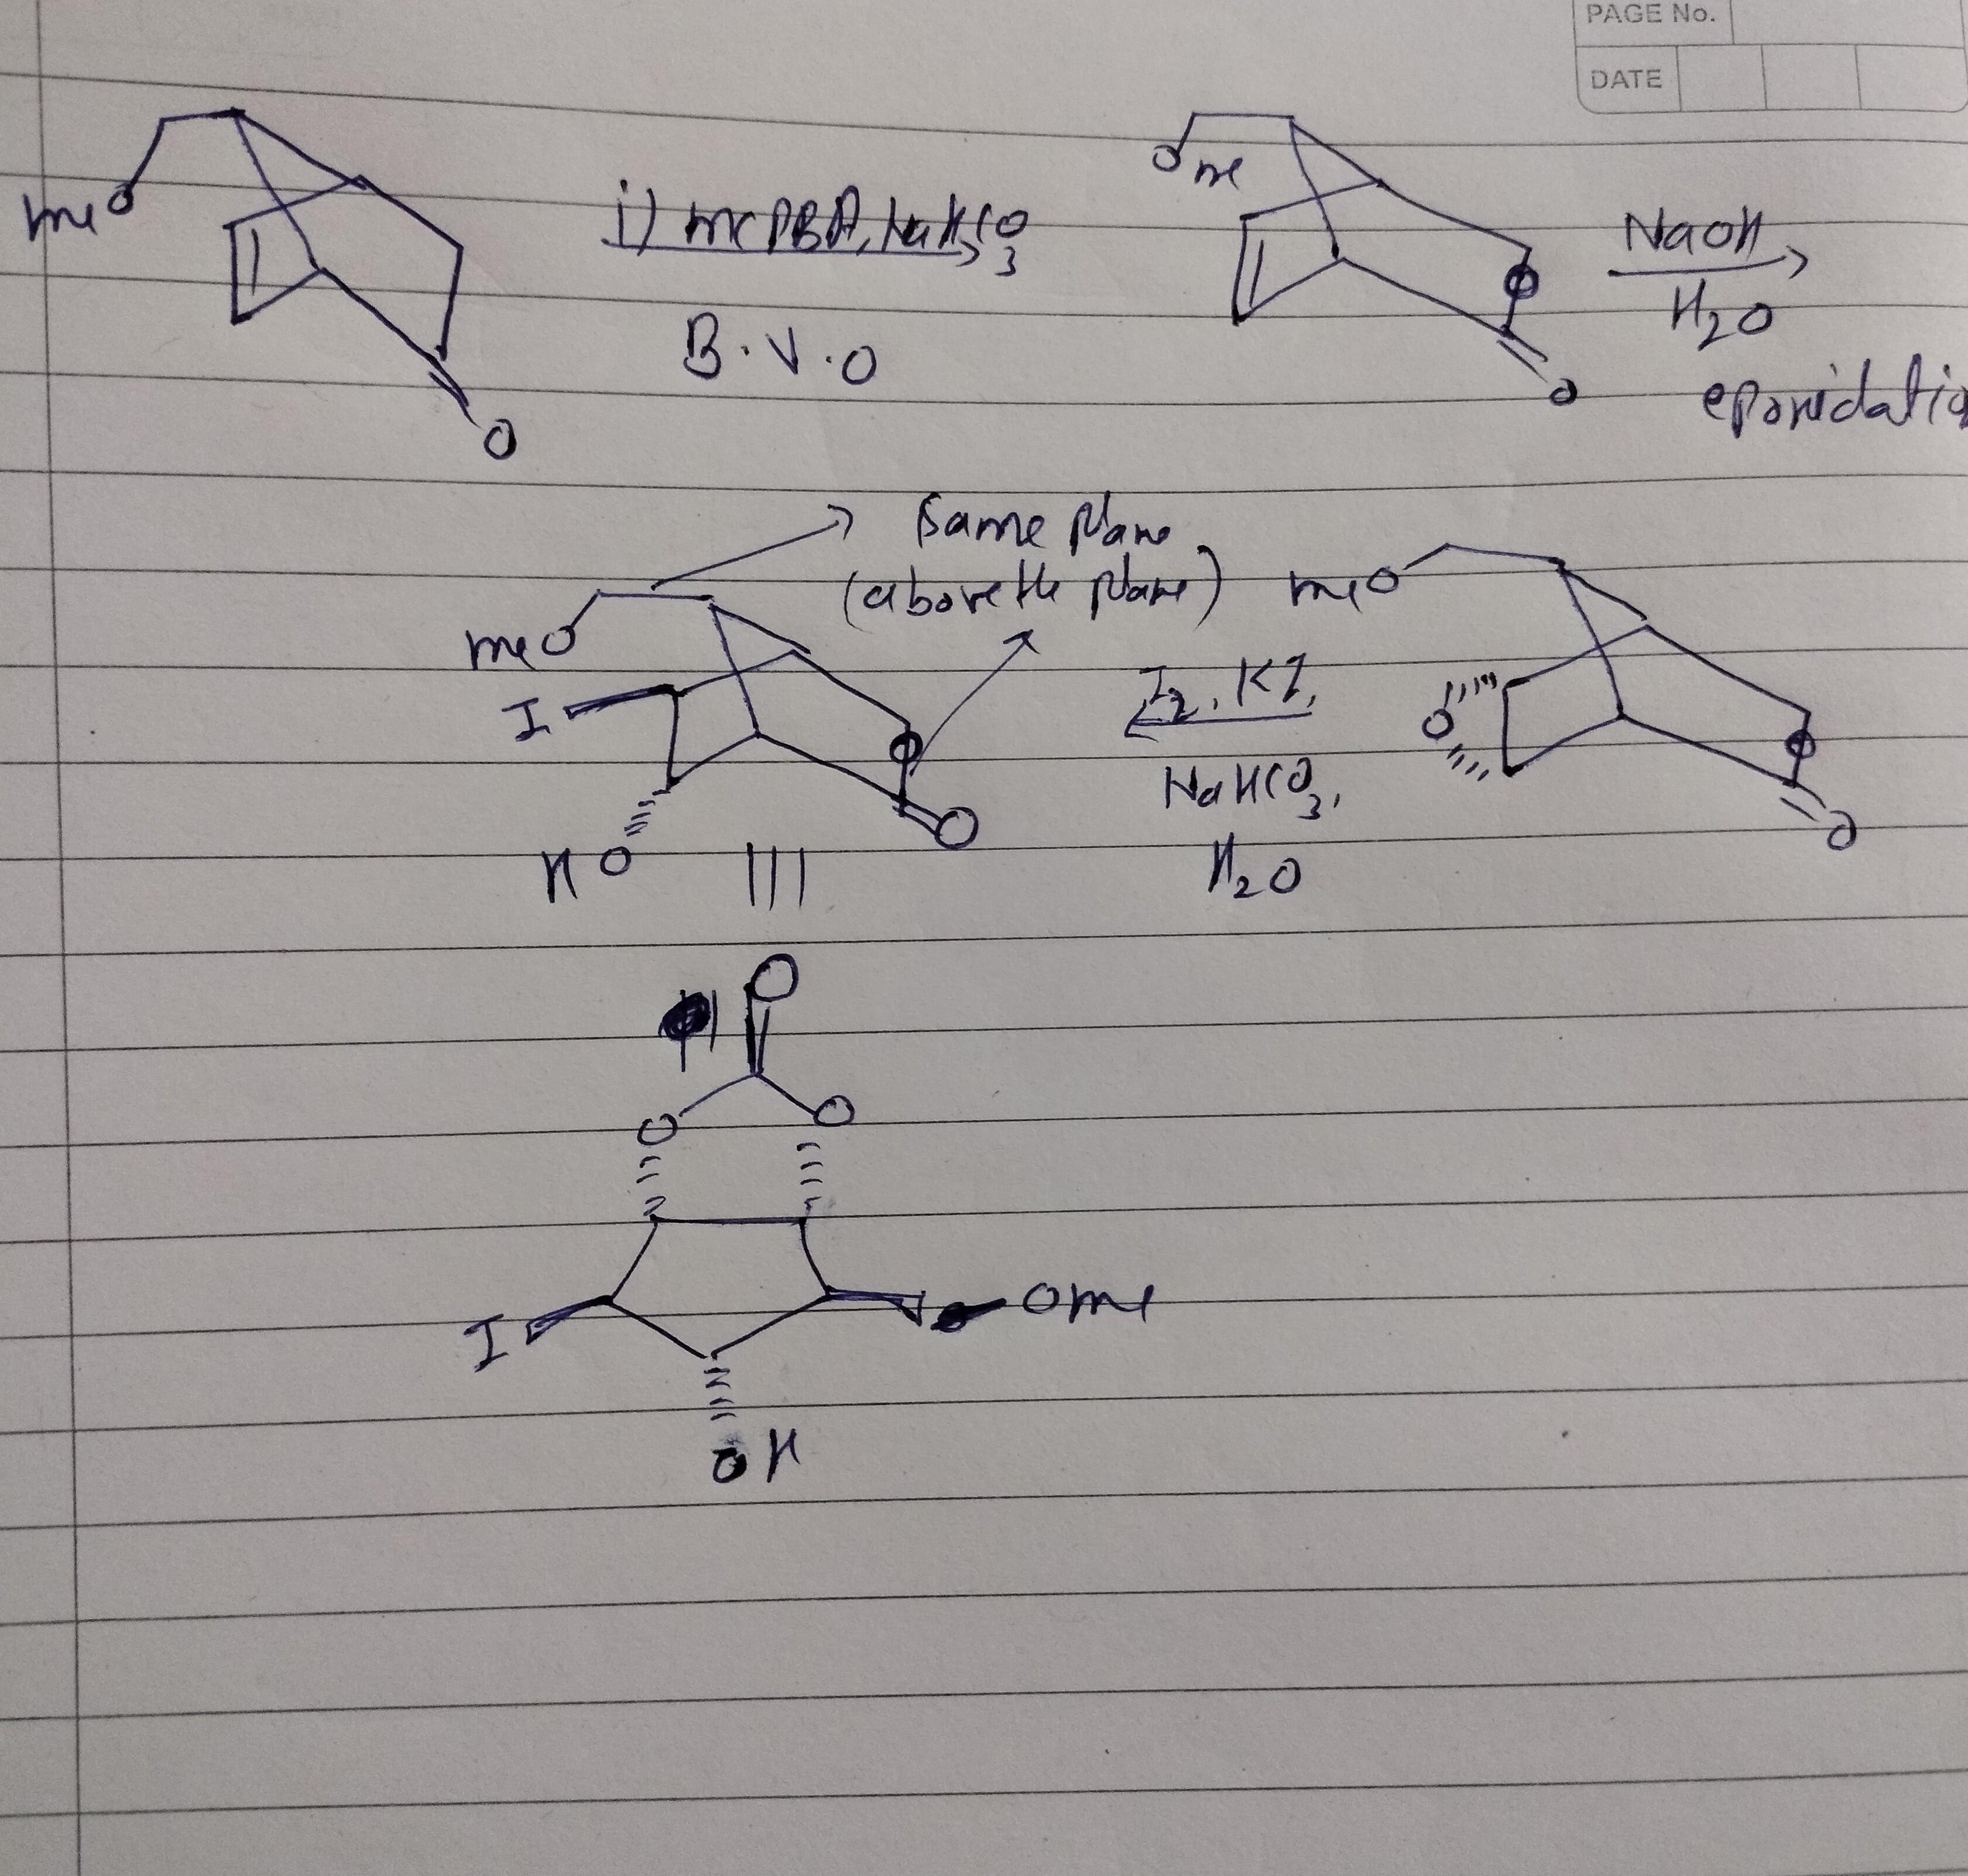 PAGE No.
DATE
meO
O
i) mCPBA, NaHCO3
B.V.O
Ome
O
O
NaOH
H2O
epoxidatio
Same plane
(above the plane)
meO
I
HO
O
O
I2, KI,
NaHCO3,
H2O
meO
O
O
O
O
O
O
I
Ome
OH